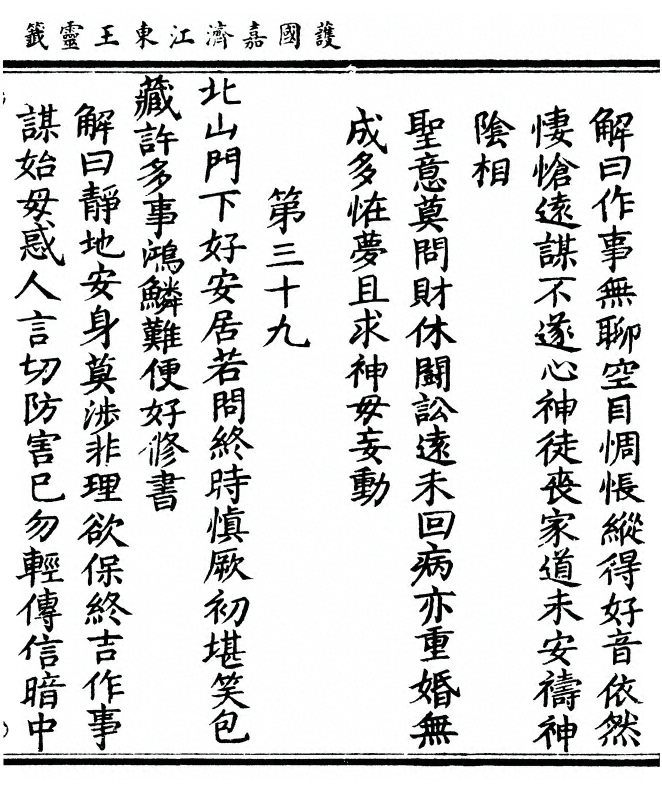 護國嘉濟江東王靈籤
解曰作事無聊空自惆悵縱得好音依然
悽愴遠謀不遂心神徒喪家道未安禱神
陰相
聖意莫問財休鬭訟遠未回病亦重婚無
成多恠夢且求神毋妄動
第三十九
北山門下好安居若問終時慎厥初堪笑包
藏許多事鴻鱗難便好修書
解曰靜地安身莫涉非理欲保終吉作事
謀始毋惑人言切防害已勿輕傳信暗中